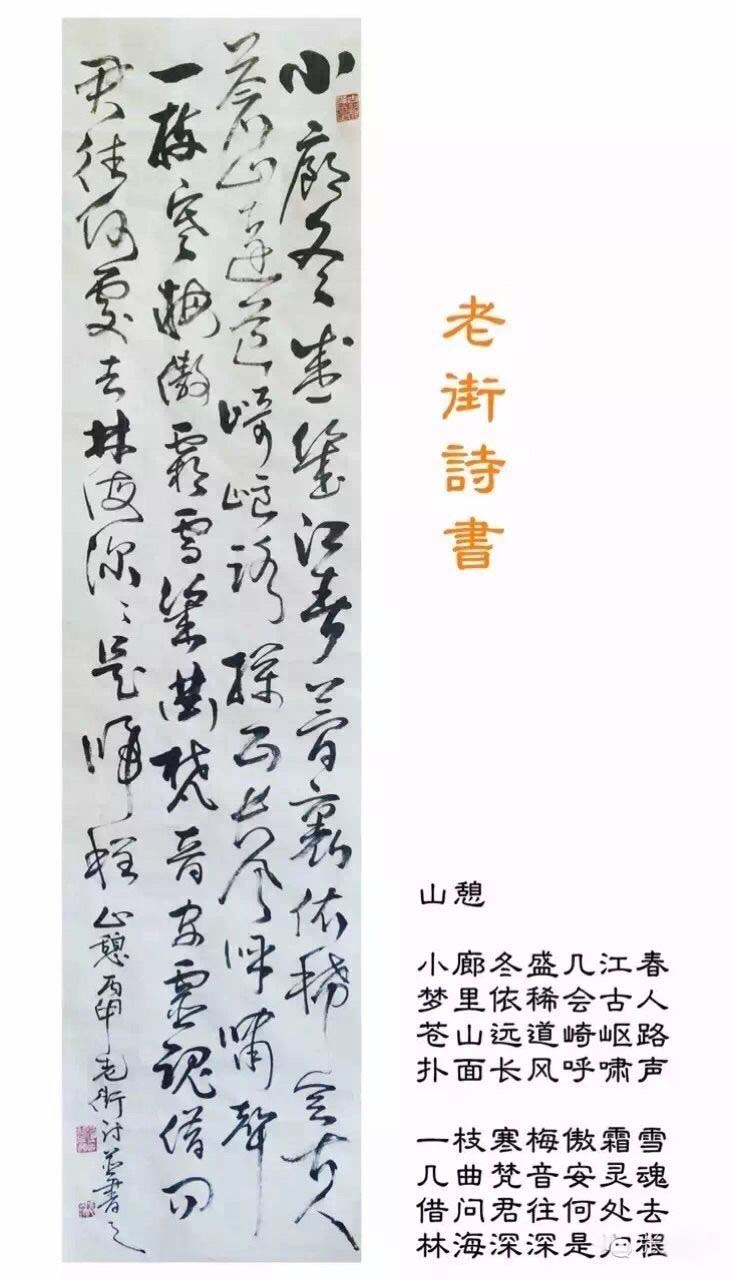 小廊冬盛幾江春夢裏依稀會古人
蒼山遠道崎岖路撲面長風呼嘯聲
一枝寒梅傲霜雪幾曲梵音安靈魂借问
君往何處去林海深深是歸程
山憩丙申老街诗并書之
老街詩書
山憩
小廊冬盛几江春
梦里依稀会古人
苍山远道崎岖路
扑面长风呼啸声
一枝寒梅傲霜雪
几曲梵音安灵魂
借问君往何处去
林海深深是归程